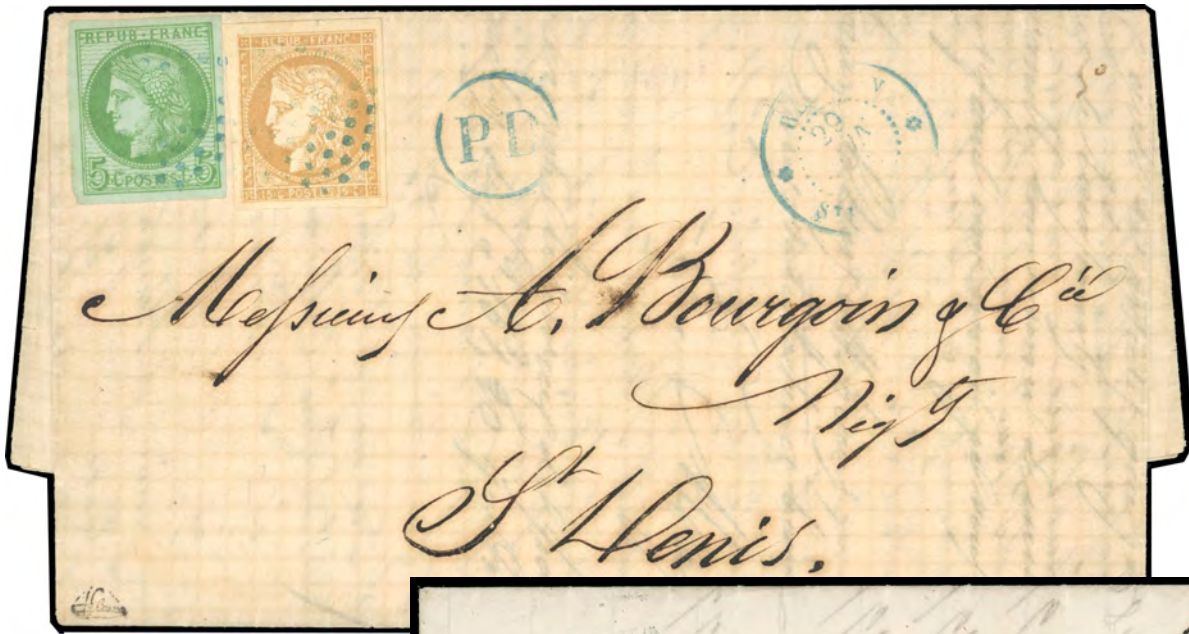 REPUB·FRANC
5 C·POSTES 5
REPUB·FRANC
15 C·POSTES·15 C
PD
Messieurs A. Bourgoin & Cie
Nég^ts
S^t Denis.